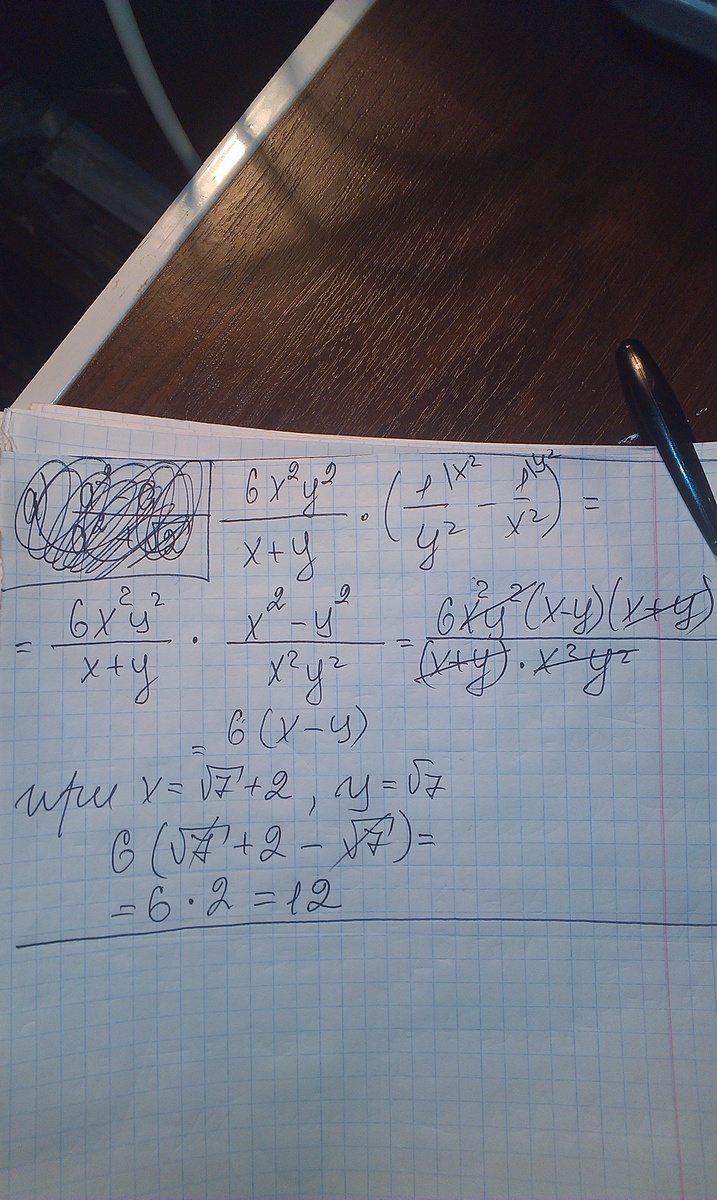 6x²y² / x+y · (1|x² / y² − 1|y² / x²) =
= 6x²y² / x+y · x²−y² / x²y² = 6x²y²(x−y)(x+y) / (x+y)·x²y²
= 6(x−y)
при x=√7+2, y=√7
6(√7+2−√7)=
=6·2=12